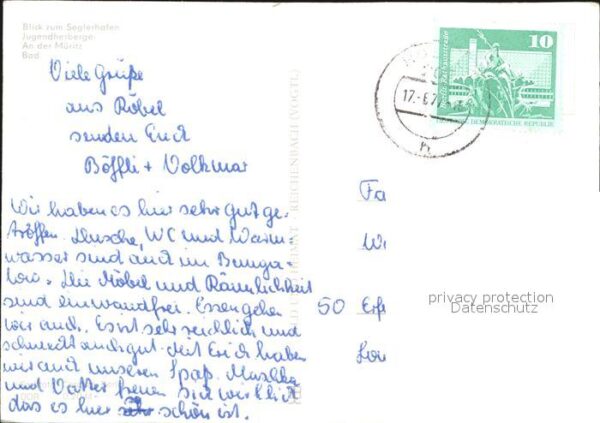 Blick zum Seglerhafen
Jugendherberge
An der Müritz
Bad
Viele Grüße
aus Röbel
senden Euch
Böffli + Volkmar
Wir haben es hier sehr gut ge-
tröffen. Dusche, WC und Warm-
wasser sind auch im Bunga-
low. Die Möbel und Räumlichkeit
sind einwandfrei. Essen gehen
wir auch. Es ist sehr reichlich und
schmeckt auch gut. Mit Erich haben
wir auch unseren Spaß. Muschka
und Vatter freuen sich wirklich
das es hier schön ist.
REICHENBACH (VOGTL)
10
Berlin, Rathausstraße
DEUTSCHE DEMOKRATISCHE REPUBLIK
17.-8.7
h
Fa
50 Erf
privacy protection
Datenschutz